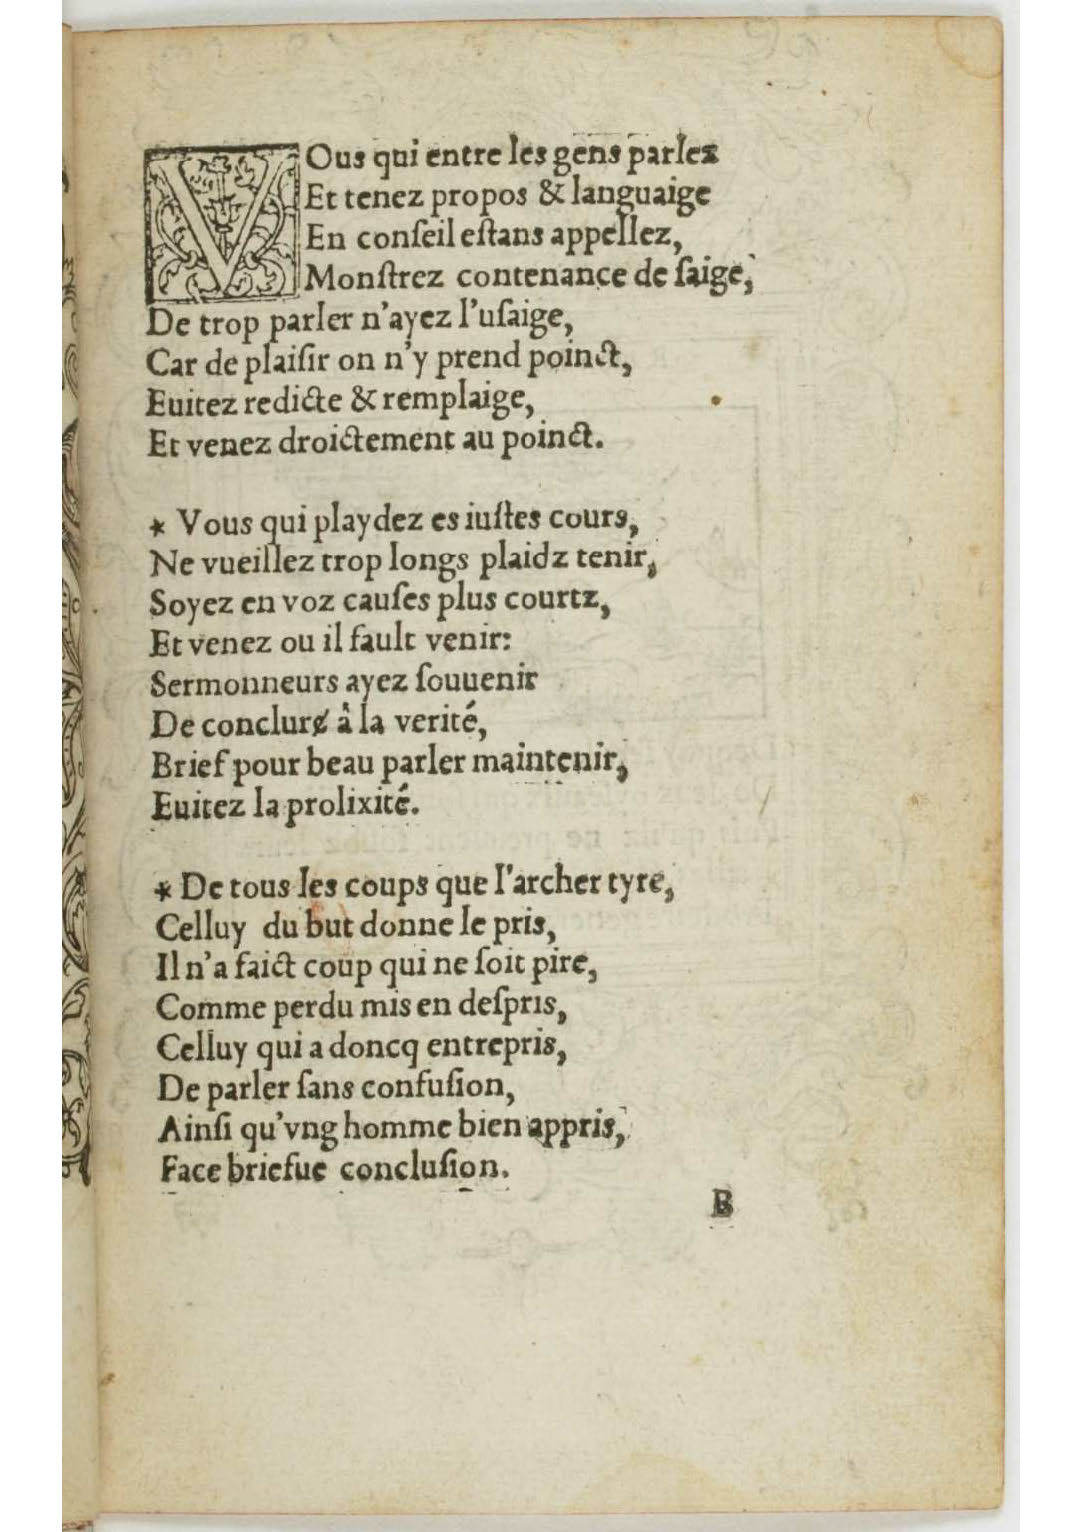 VOus qui entre les gens parlez
Et tenez propos & languaige
En conſeil eſtans appellez,
Monſtrez contenance de ſaige,
De trop parler n'ayez l'uſaige,
Car de plaiſir on n'y prend poinct,
Euitez redicte & remplaige,
Et venez droictement au poinct.
* Vous qui playdez es iuſtes cours,
Ne vueillez trop longs plaidz tenir,
Soyez en voz cauſes plus courtz,
Et venez ou il fault venir:
Sermonneurs ayez ſouuenir
De conclurɇ â la verité,
Brief pour beau parler maintenir,
Euitez la prolixité.
* De tous les coups que l'archer tyre,
Celluy du but donne le pris,
Il n'a faict coup qui ne ſoit pire,
Comme perdu mis en deſpris,
Celluy qui a doncq entrepris,
De parler ſans confuſion,
Ainſi qu'vng homme bien appris,
Face briefue concluſion.
B